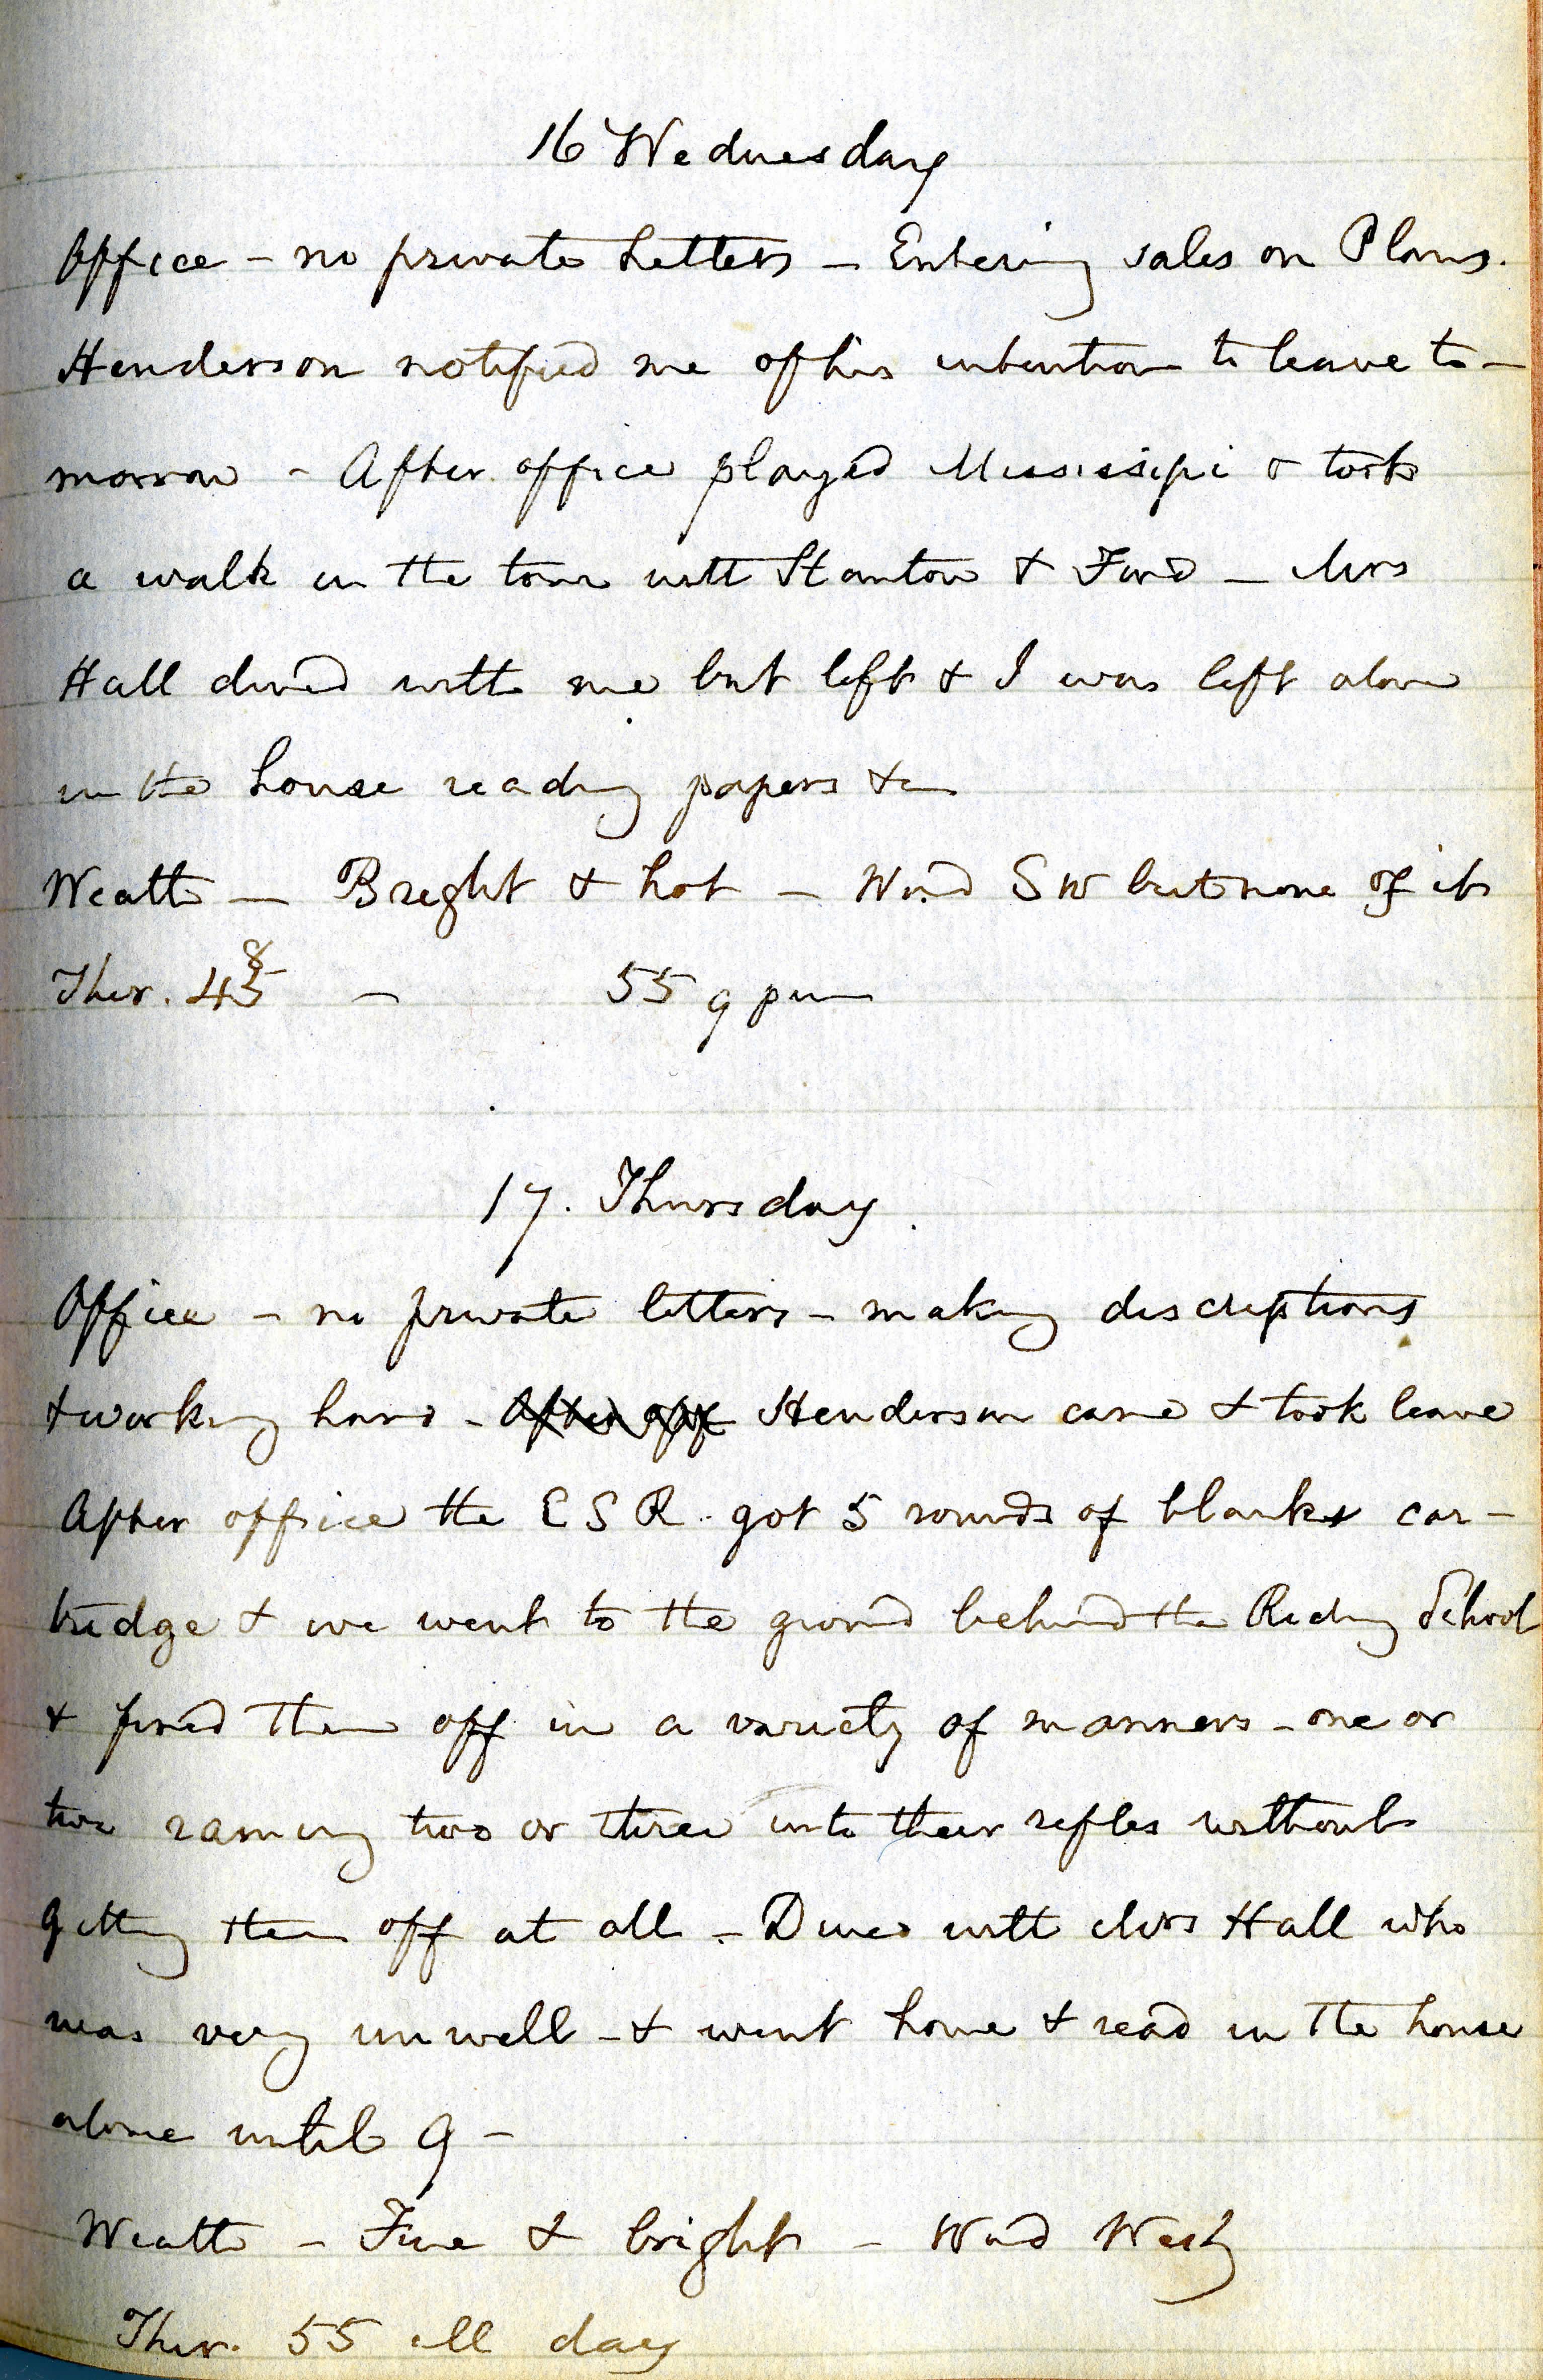 16 Wednesday
Office - no private Letters - Entering sales on Plans.
Henderson notified me of his intention to leave to-
morrow - After office played Mississipi & took
a walk in the town with Stanton & Ford - Mrs
Hall dined with me but left & I was left alone
in the house reading papers &c
Weath - Bright & hot - Wind SW but none of it
Ther. 48 - 55 9 pm
17. Thursday.
Office - no private letters - making descriptions
& working hard - After off Henderson came & took leave
After office the C S R. got 5 rounds of blank car-
tridge & we went to the ground behind the Riding School
& fired them off in a variety of manners - one or
two raming two or three into their rifles without
getting them off at all - Dined with Mrs Hall who
was very unwell - & went home & read in the house
alone until 9 -
Weath - Fine & bright - Wind Westy
Ther. 55 all day